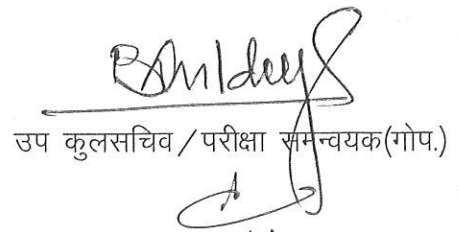 उप कुलसचिव / परीक्षा समन्वयक(गोप.)